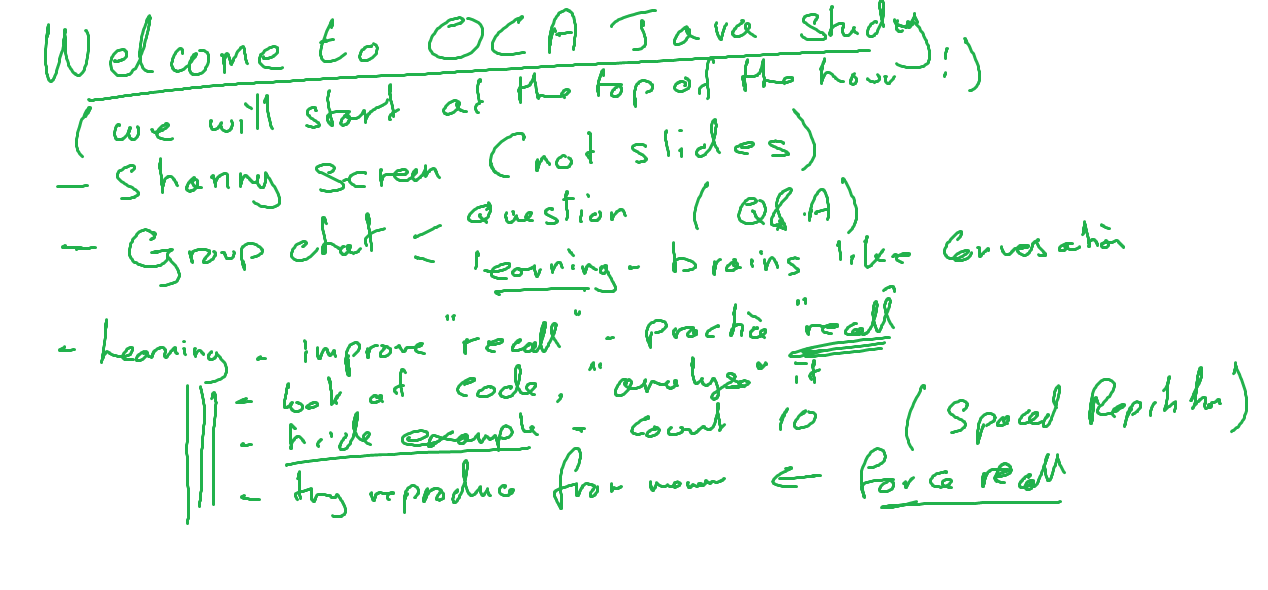 Welcome to OCA Java Study!
(we will start at the top of the hour :)
- Sharing Screen (not slides)
- Group chat - Question (Q&A)
- learning - brains like conversation
- Learning - improve "recall" - Practice "recall"
- look at code, "analyse" it
- hide example - count 10 (Spaced Repitition)
- try reproduce from ← force recall